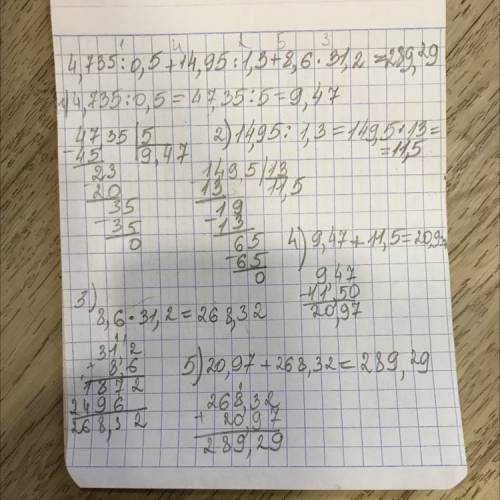 1 4 2 5 3
4,735:0,5+14,95:1,3+8,6·31,2=289,29
1)4,735:0,5=47,35:5=9,47
4735|5
-45 9,47
-23
20
-35
35
0
2)14,95:1,3=149,5:13=
=11,5
149,5|13
-13 11,5
-19
13
-65
65
0
3)
8,6·31,2=268,32
31,2
8,6
1872
2496
268,32
4)9,47+11,5=20,97
947
11,50
20,97
5)20,97+268,32=289,29
268,32
+20,97
289,29